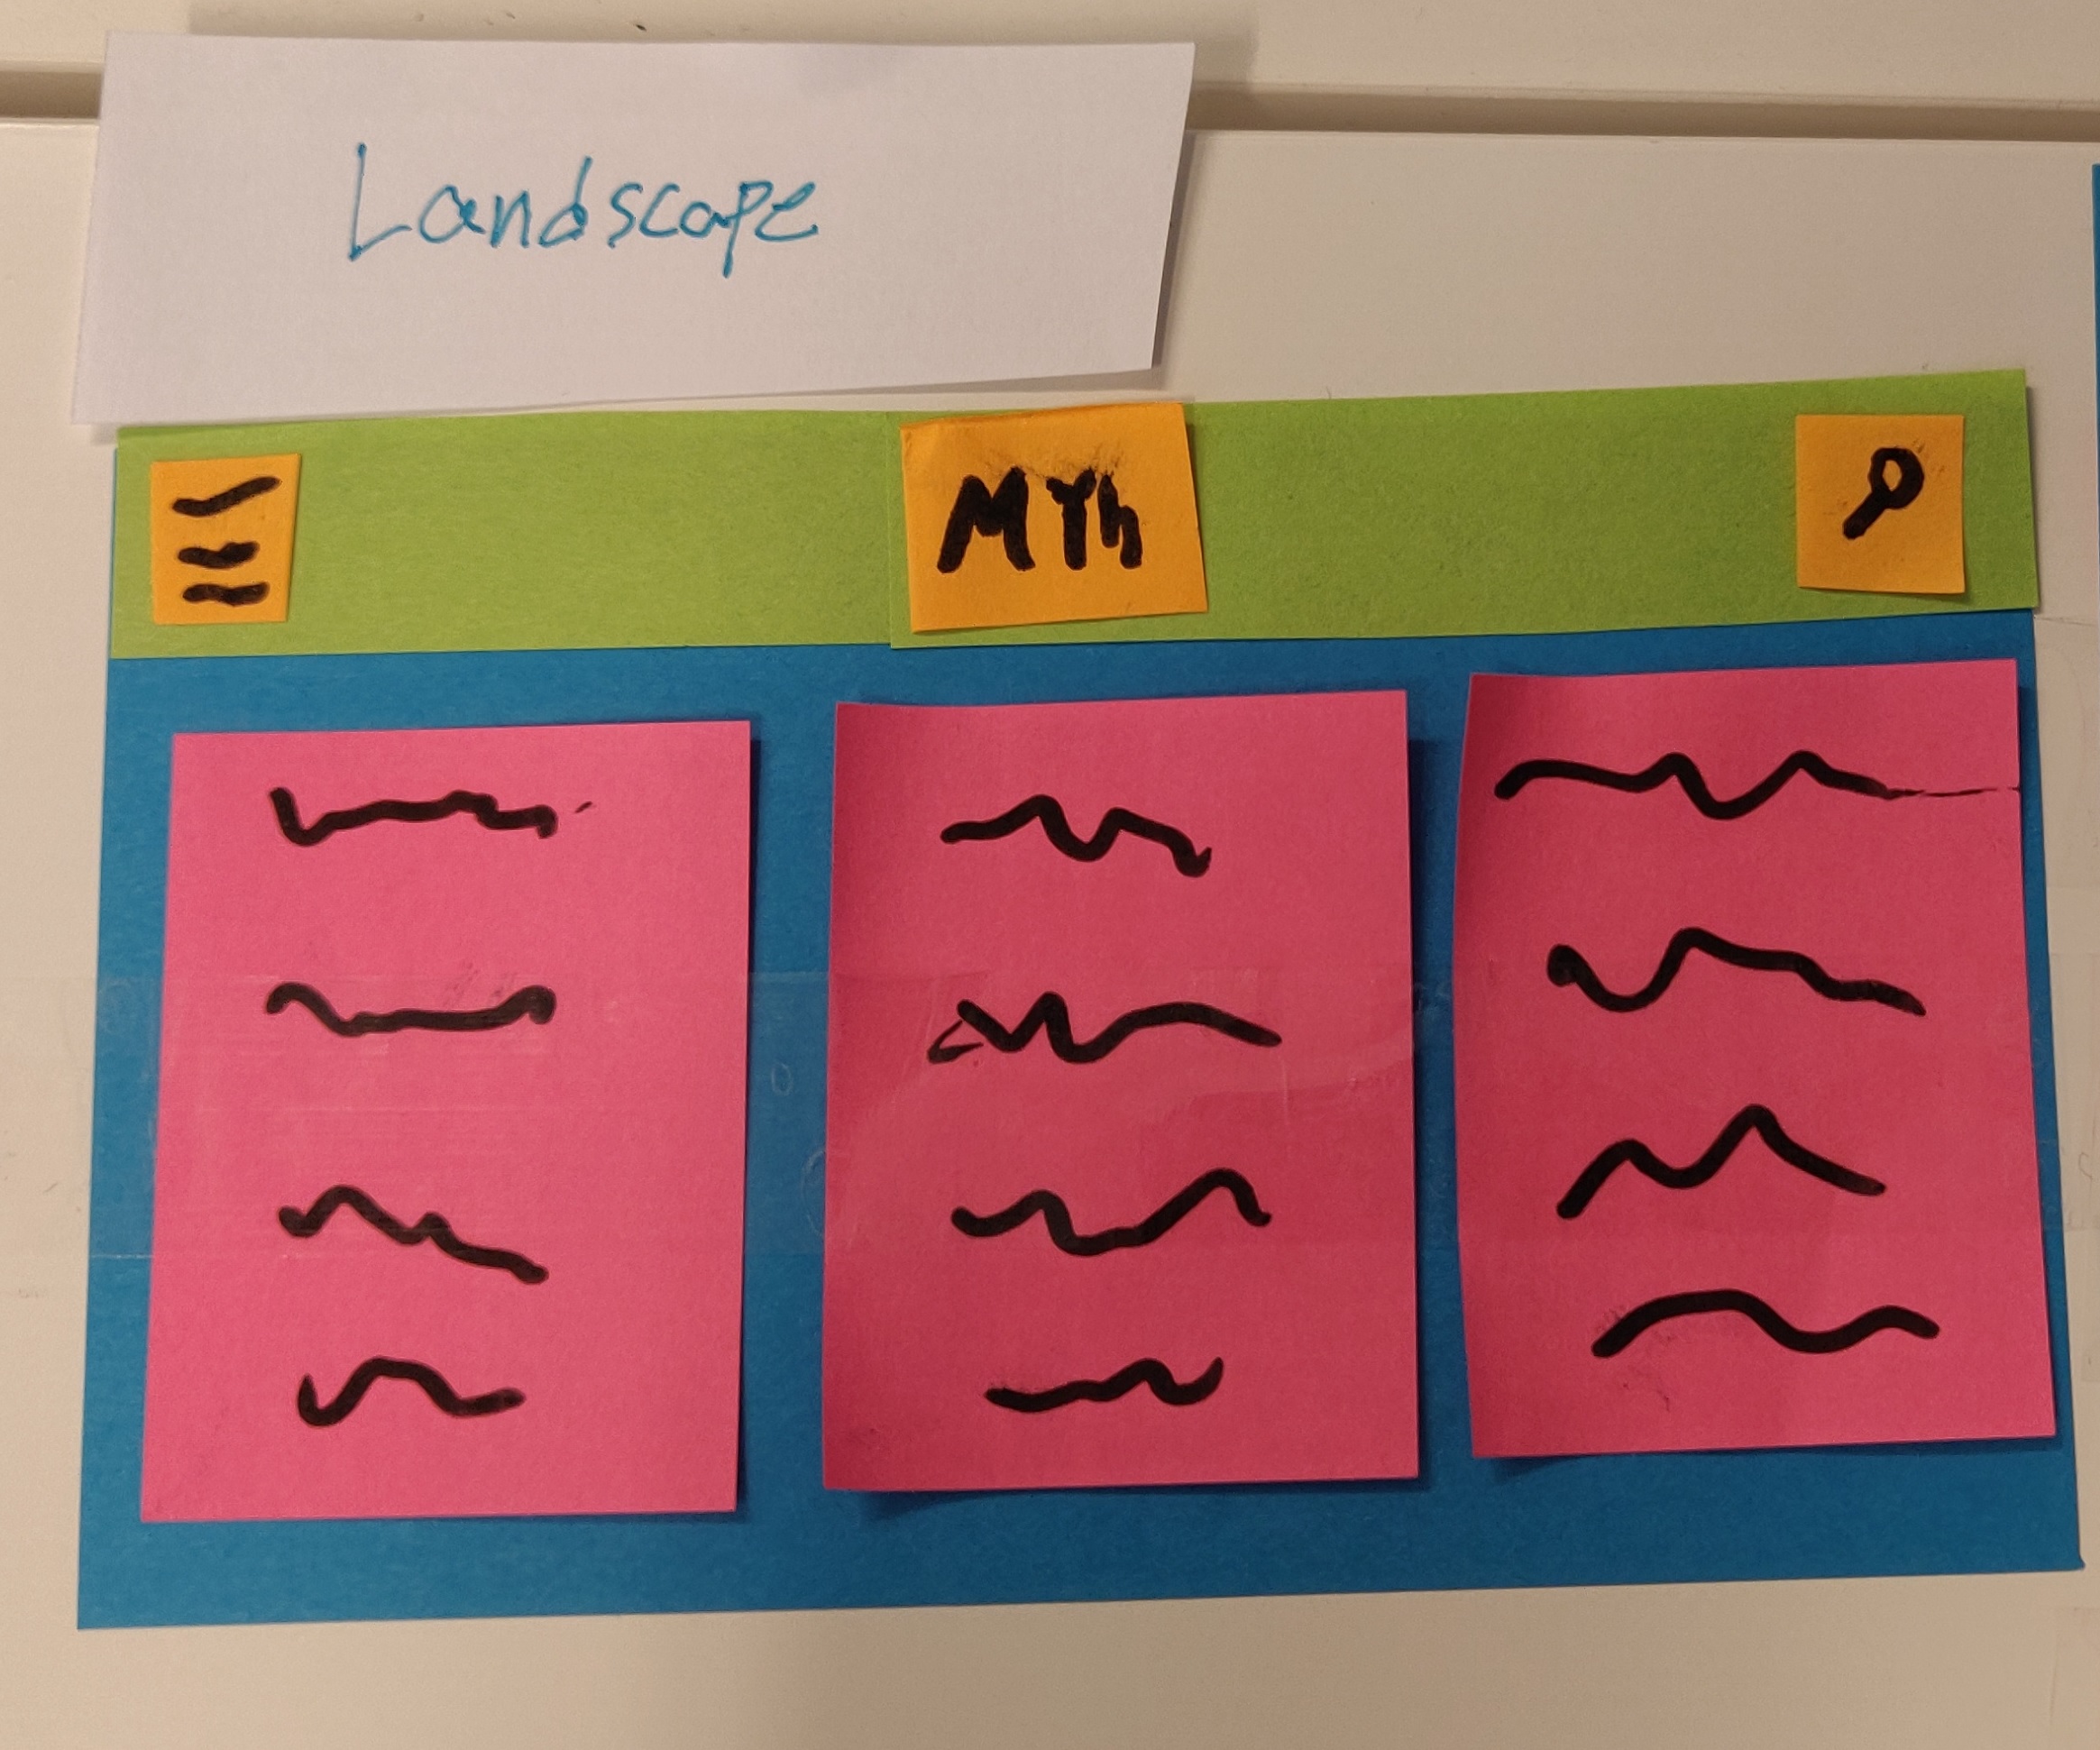 Landscape
MYh